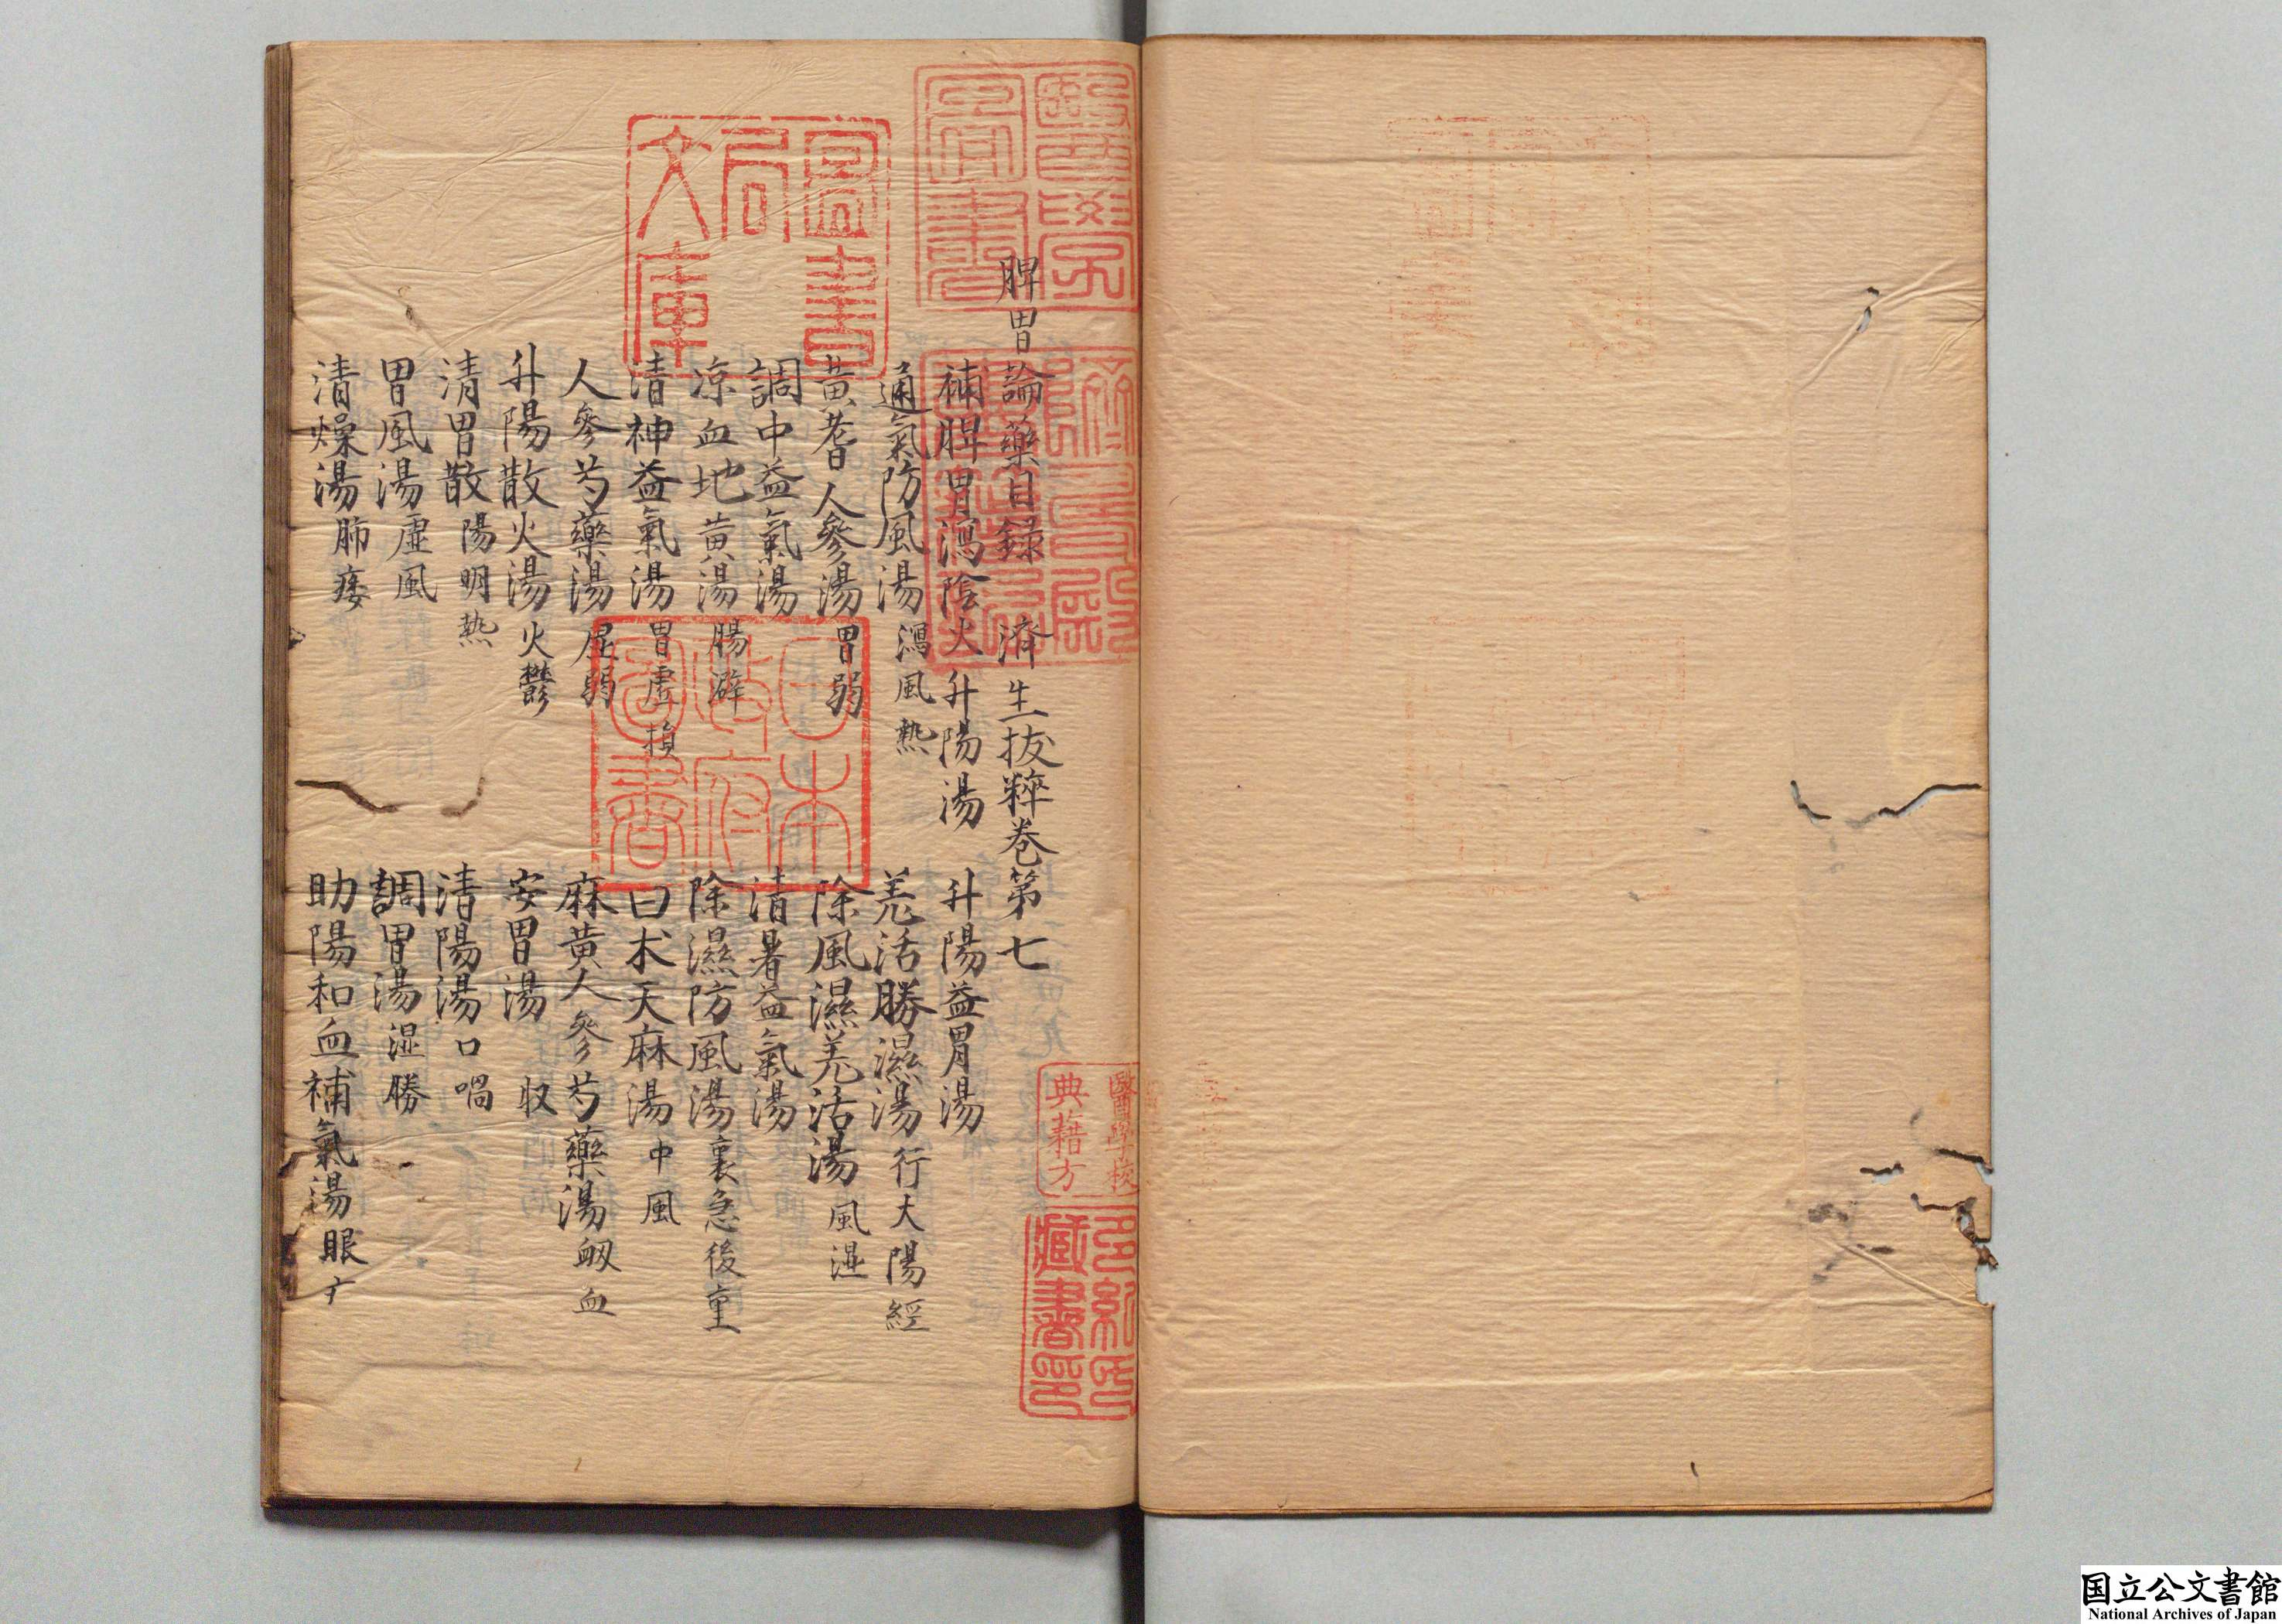 脾胃論藥目録 濟生拔粹巻第七
補脾胃瀉陰火升陽湯 升陽益胃湯
通氣防風湯 瀉風熱 羌活勝濕湯 行大陽經
黄耆人參湯 胃弱 除風濕羌活湯 風湿
調中益氣湯 清暑益氣湯
凉血地黄湯 腸澼 除濕防風湯 裏急後重
清神益氣湯 胃虚損 白术天麻湯 中風
人參芍藥湯 虚弱 麻黄人參芍藥湯 衂血
升陽散火湯 火鬱 安胃湯 収
清胃散 陽明熱 清陽湯 口喎
胃風湯 虚風 調胃湯 湿勝
清燥湯 肺痿 助陽和血補氣湯 眼
醫學
圖書
局
文庫
日本
政府
圖書
醫學校
典藉方
多紀氏
藏書印
国立公文書館
National Archives of Japan